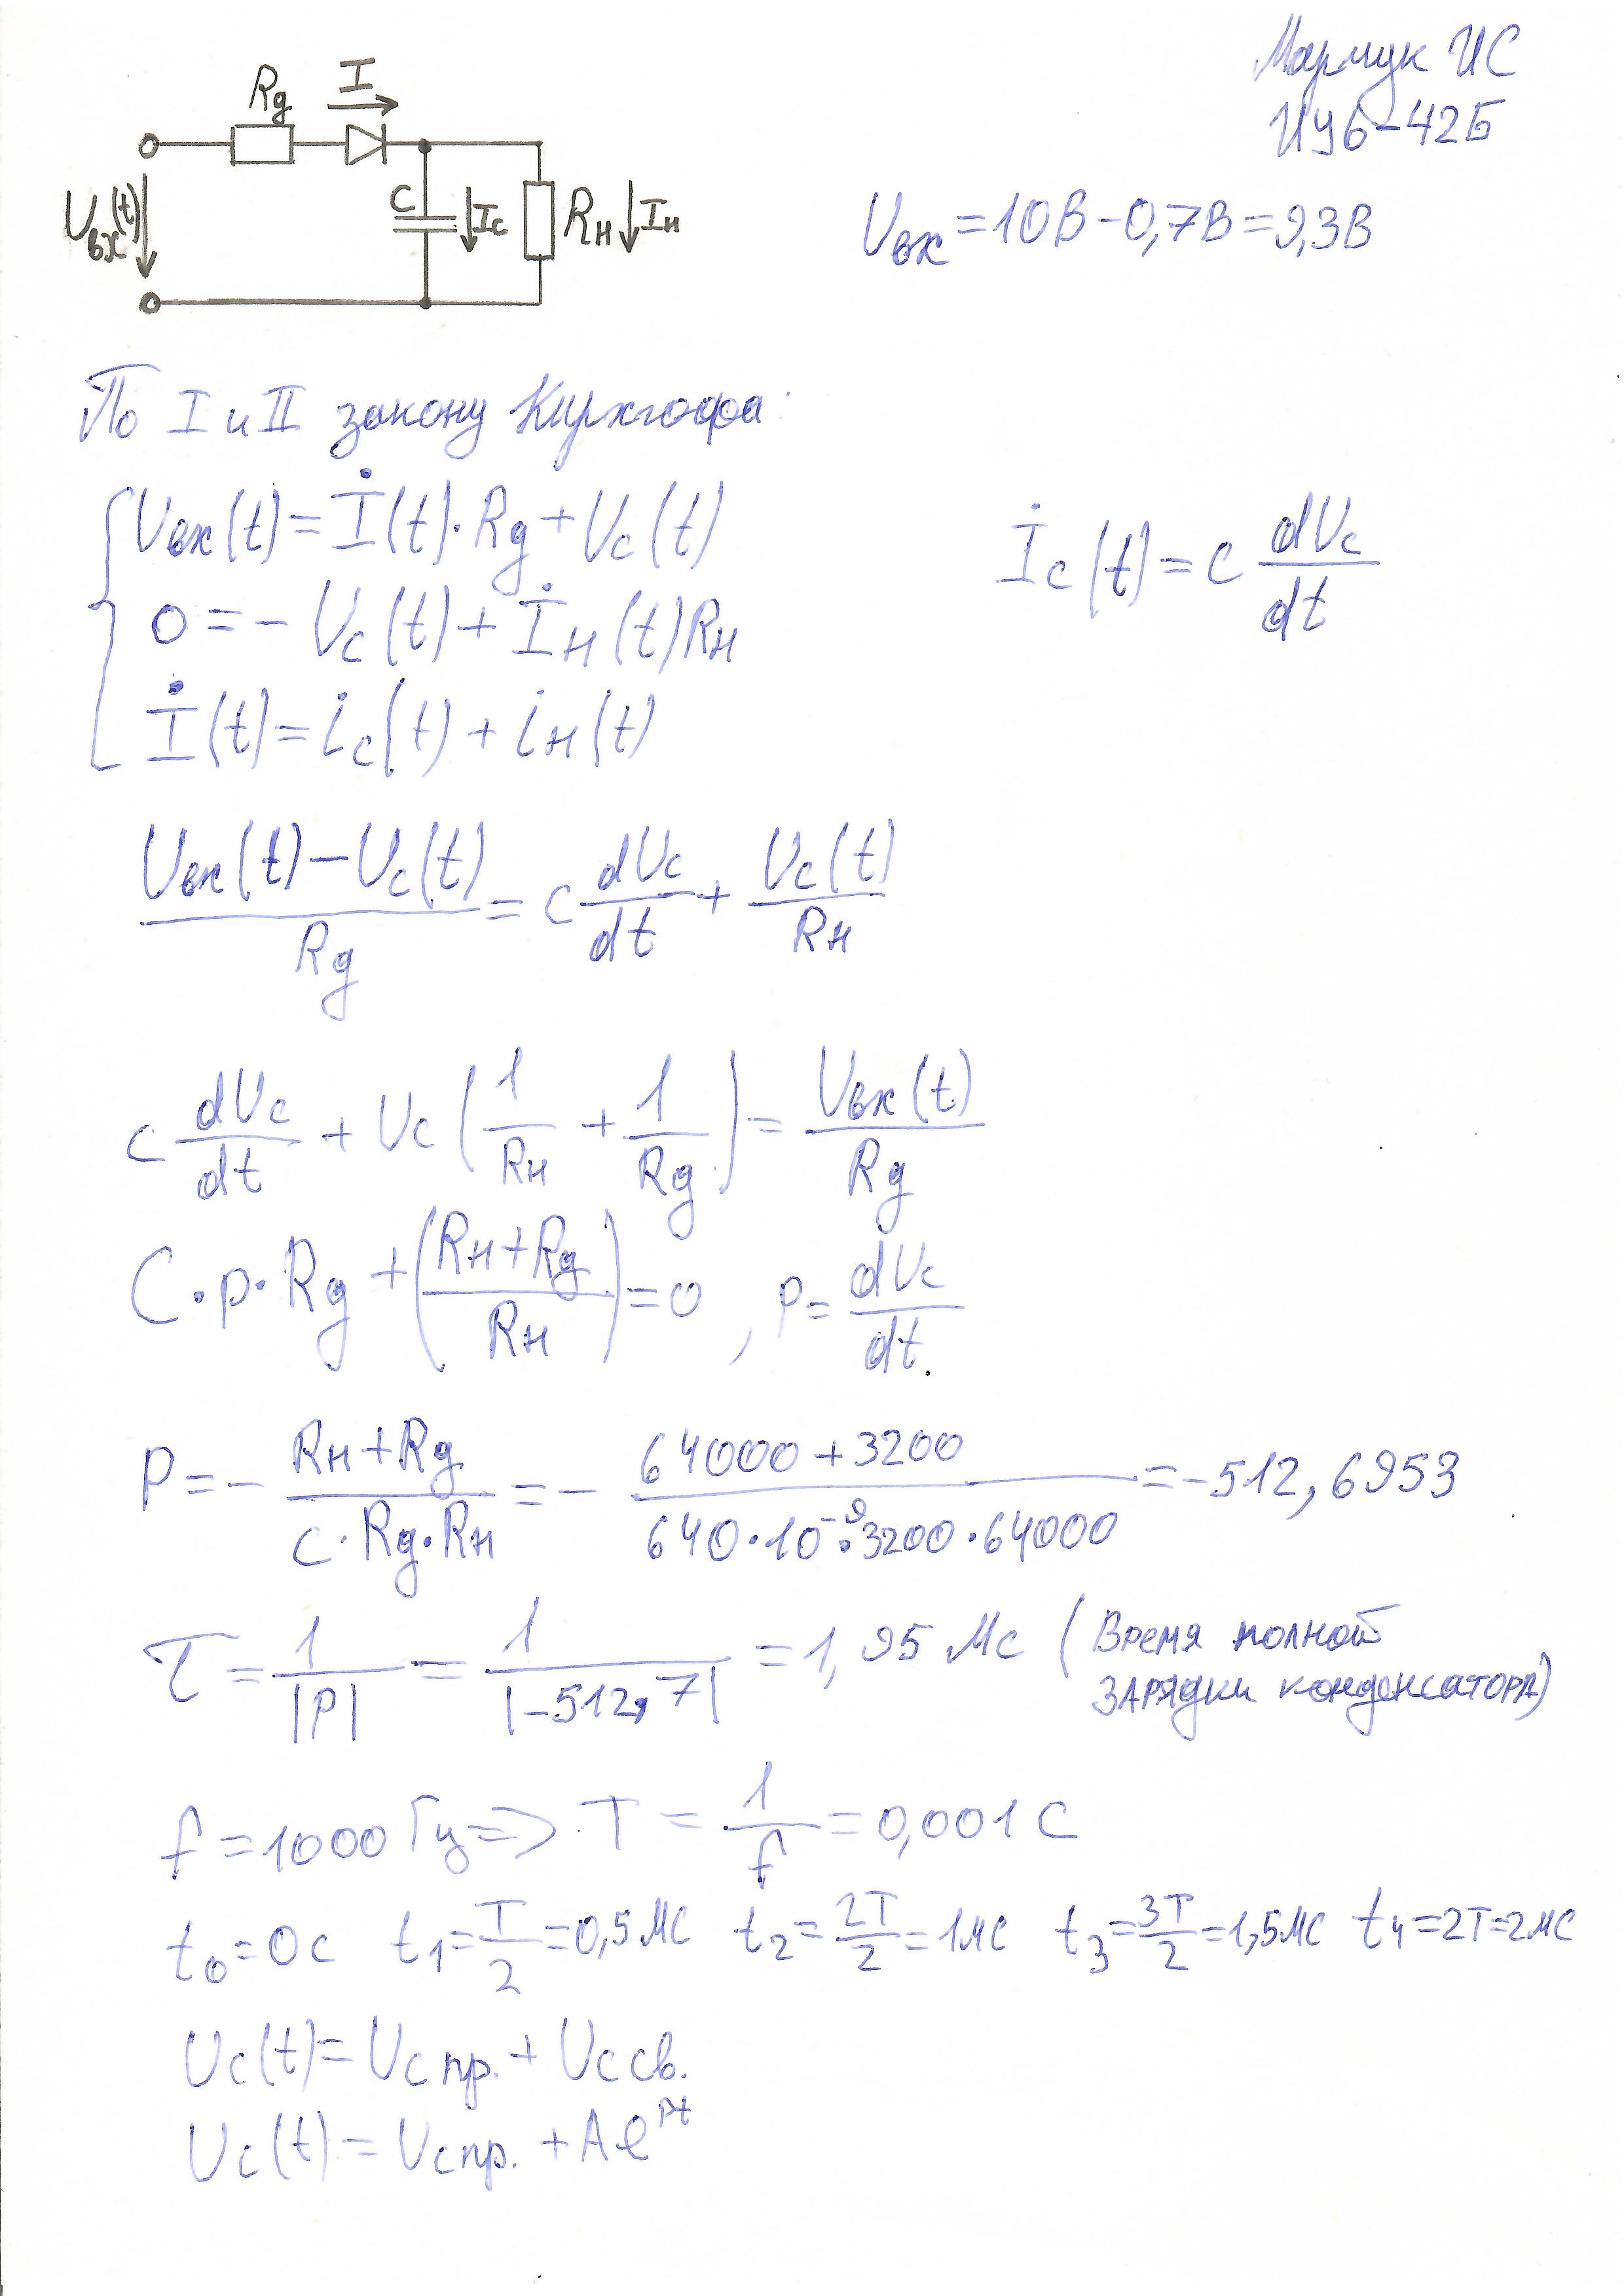 Мармук ИС
ИУ6-42Б
Rg I
Uвх(t) C Ic Rн Iн
Uвх = 10В - 0,7В = 9,3В
По I и II закону Кирхгофа:
Uвх(t) = İ(t)·Rg + Uc(t)
İc(t) = C dUc/dt
0 = - Uc(t) + İн(t)Rн
İ(t) = ic(t) + iн(t)
(Uвх(t) - Uc(t))/Rg = C dUc/dt + Uc(t)/Rн
C dUc/dt + Uc (1/Rн + 1/Rg) = Uвх(t)/Rg
C·p·Rg + ((Rн+Rg)/Rн) = 0 , p = dUc/dt.
P = - (Rн+Rg)/(C·Rg·Rн) = - (64000 + 3200)/(640·10⁻⁹·3200·64000) = -512,6953
τ = 1/|P| = 1/|-512,7| = 1,95 мс (Время полной
зарядки конденсатора)
f = 1000 Гц => T = 1/f = 0,001 С
t₀ = 0с t₁ = T/2 = 0,5 мс t₂ = 2T/2 = 1мс t₃ = 3T/2 = 1,5мс t₄ = 2T = 2мс
Uc(t) = Uc пр. + Uc св.
Uc(t) = Uc пр. + Ae^pt